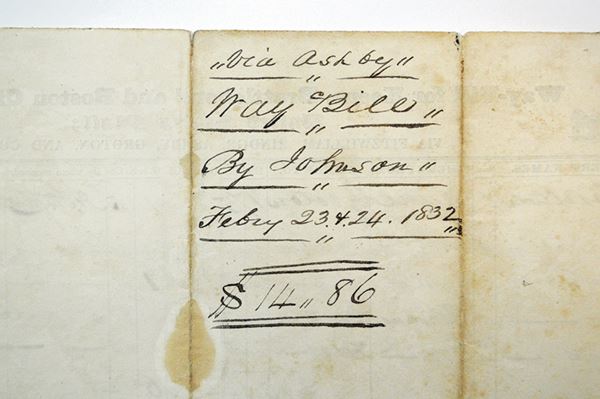 „Via Ashby"
Way Bill „
By Johnson „
Febry 23.4.24. 1832
$14„86